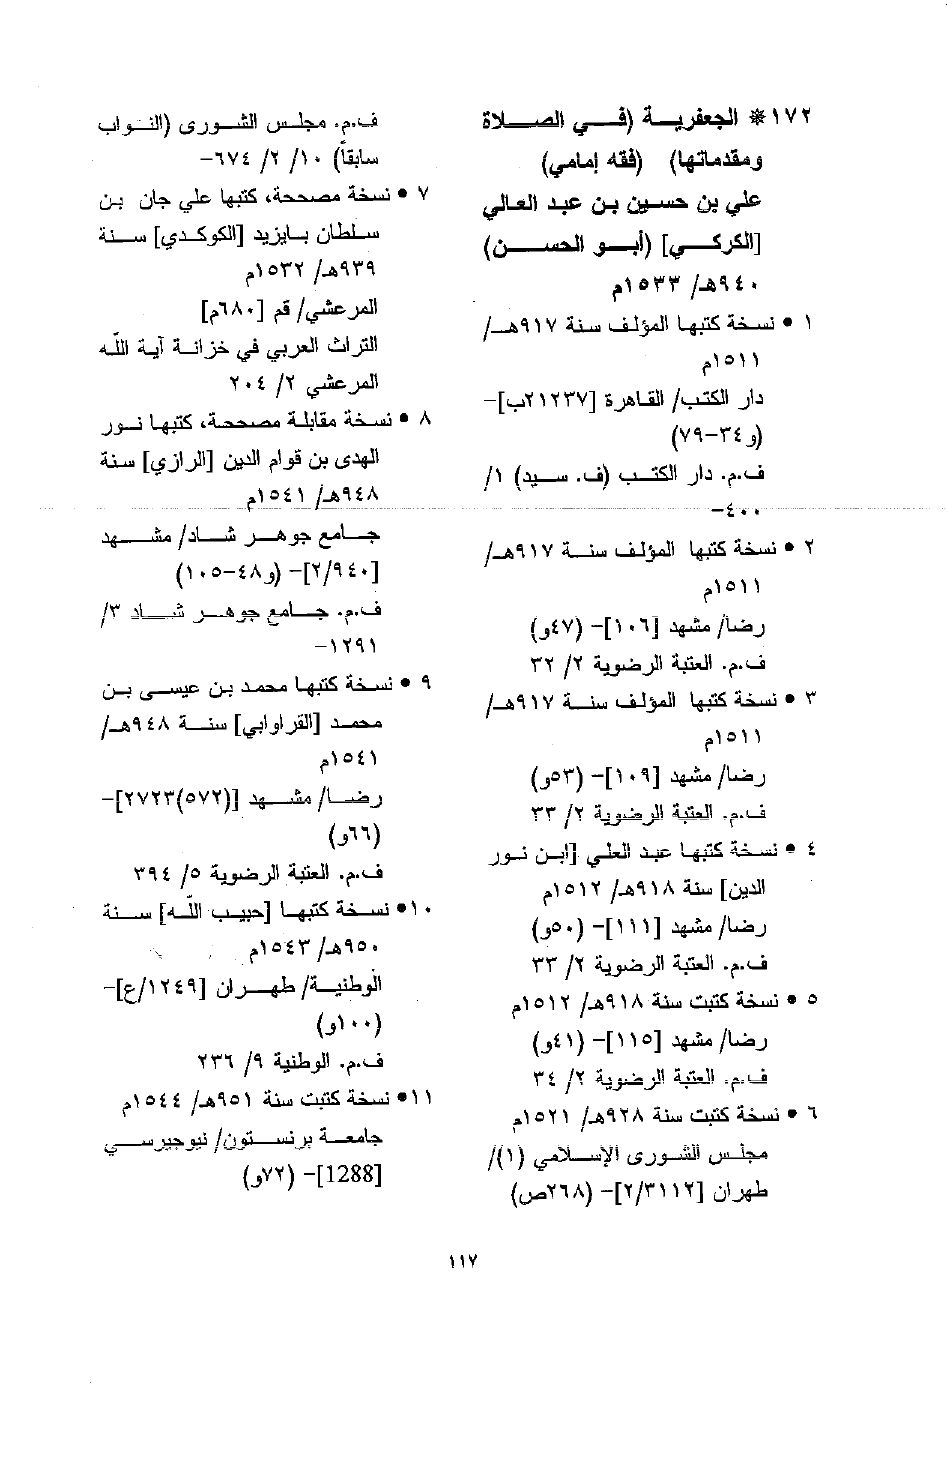 ١٧٢* الجعفرية (في الصلاة
ومقدماتها) (فقه إمامي)
علي بن حسين بن عبد العالي
[الكركي] (أبو الحسن)
٩٤٠هـ/ ١٥٣٣م
١ • نسخة كتبها المؤلف سنة ٩١٧هـ/
١٥١١م
دار الكتب/ القاهرة [٢١٢٣٧ب]-
(و٣٤-٧٩)
ف.م. دار الكتب (ف. سيد) ١/
٤٠٠-
٢ • نسخة كتبها المؤلف سنة ٩١٧هـ/
١٥١١م
رضا/ مشهد [١٠٦]- (٤٧و)
ف.م. العتبة الرضوية ٢/ ٣٢
٣ • نسخة كتبها المؤلف سنة ٩١٧هـ/
١٥١١م
رضا/ مشهد [١٠٩]- (٥٣و)
ف.م. العتبة الرضوية ٢/ ٣٣
٤ • نسخة كتبها عبد العلي [ابن نور
الدين] سنة ٩١٨هـ/ ١٥١٢م
رضا/ مشهد [١١١]- (٥٠و)
ف.م. العتبة الرضوية ٢/ ٣٣
٥ • نسخة كتبت سنة ٩١٨هـ/ ١٥١٢م
رضا/ مشهد [١١٥]- (٤١و)
ف.م. العتبة الرضوية ٢/ ٣٤
٦ • نسخة كتبت سنة ٩٢٨هـ/ ١٥٢١م
مجلس الشورى الإسلامي (١)/
طهران [٢/٣١١٢]- (٢٦٨ص)
ف.م. مجلس الشورى (النواب
سابقاً) ١٠/ ٢/ ٦٧٤-
٧ • نسخة مصححة، كتبها علي جان بن
سلطان بايزيد [الكوكدي] سنة
٩٣٩هـ/ ١٥٣٢م
المرعشي/ قم [٦٨٠م]
التراث العربي في خزانة آية الله
المرعشي ٢/ ٢٠٤
٨ • نسخة مقابلة مصححة، كتبها نور
الهدى بن قوام الدين [الرازي] سنة
٩٤٨هـ/ ١٥٤١م
جامع جوهر شاد/ مشهد
[٢/٩٤٠]- (و٤٨-١٠٥)
ف.م. جامع جوهر شاد ٣/
١٢٩١-
٩ • نسخة كتبها محمد بن عيسى بن
محمد [القراوابي] سنة ٩٤٨هـ/
١٥٤١م
رضا/ مشهد [(٥٧٢)٢٧٢٣]-
(٦٦و)
ف.م. العتبة الرضوية ٥/ ٣٩٤
١٠• نسخة كتبها [حبيب الله] سنة
٩٥٠هـ/ ١٥٤٣م
الوطنية/ طهران [١٢٤٩/ع]-
(١٠٠و)
ف.م. الوطنية ٩/ ٢٣٦
١١• نسخة كتبت سنة ٩٥١هـ/ ١٥٤٤م
جامعة برنستون/ نيوجيرسي
[1288]- (٧٢و)
١١٧